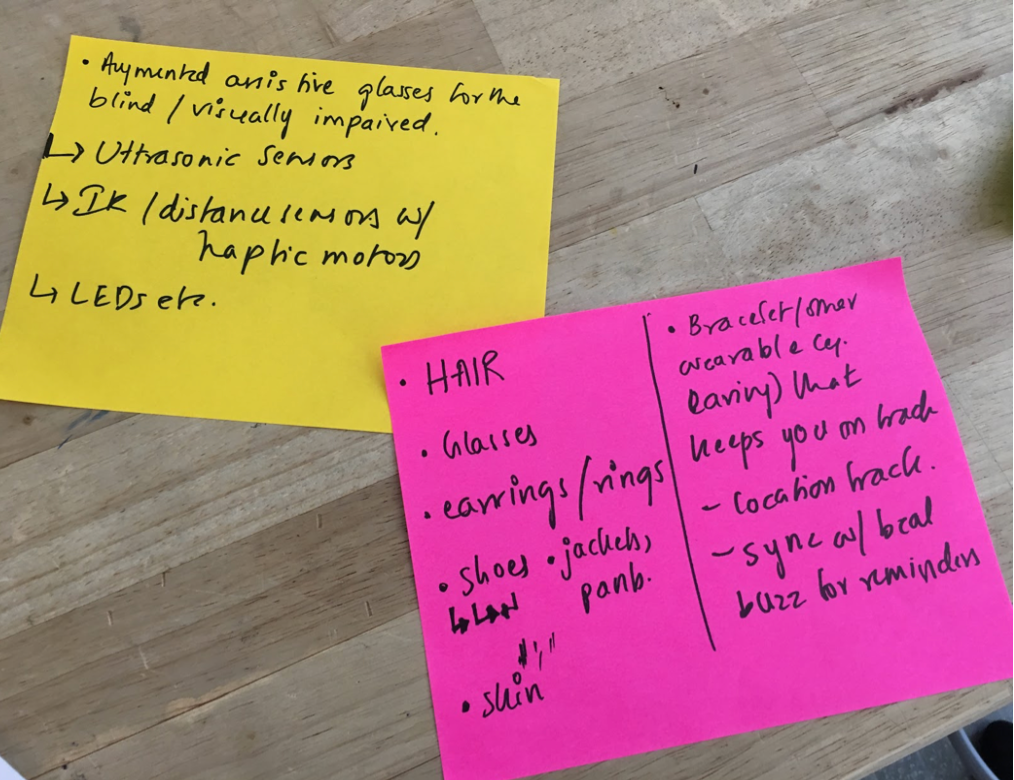 • Augmented assistive glasses for the
blind / visually impaired.
↳ Ultrasonic sensors
↳ IR / distance sensors w/
haptic motors
↳ LEDs etc.
• HAIR
• Glasses
• earrings / rings
• shoes • jackets,
pants.
• skin
• Bracelet / other
wearable (eg.
earing) that
keeps you on track
- location track.
- sync w/
buzz for reminders